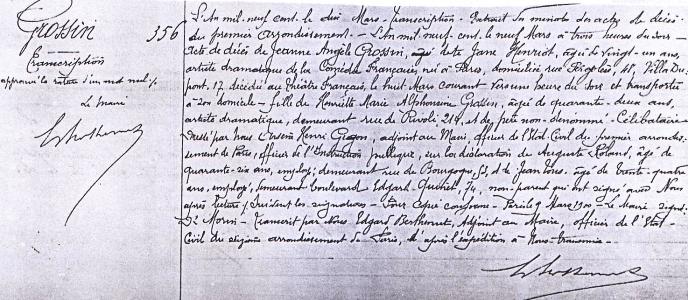 Grossin
356
Transcription
approuvé la rature d'un mot nul ./.
Le Maire
L'An mil neuf cent le dix Mars - Transcription - Extrait du minutes des actes de décès
du premier arrondissement - L'An mil neuf cent, le neuf Mars à trois heures du soir -
Acte de décès de Jeanne Angèle Grossin, dite Jane Henriot, âgée de vingt-un ans,
artiste dramatique de la Comédie Française, née à Paris, domiciliée rue 41, Villa Du-
pont, 17 décédée au Théâtre Français, le huit Mars courant vers une heure du soir et transportée
à son domicile - fille de Henriette Marie Alphonsine Grossin, âgée de quarante-deux ans,
artiste dramatique, demeurant rue de Rivoli, 214, et de père non-dénommé - Célibataire -
Dressé par Nous Henri Gugon, adjoint au Maire, officier de l'État-Civil du premier arrondis-
sement de Paris, officier de l'Instruction publique, sur la déclaration de Auguste Roland, âgé de
quarante-six ans, employé, demeurant rue de Bourgogne, 53, et de Jean âgé de trente-quatre
ans, employé, demeurant boulevard Edgard Quinet, 74, non-parents qui ont signé avec Nous
après lecture ./. Suivent les signatures - Pour Copie conforme - Paris le 9 Mars 1900 - Le Maire signé:
Dr Morin - Transcrit par Nous, Edgard Berthemet, Adjoint au Maire, officier de l'État-
Civil du seizième arrondissement de Paris, d'après l'expédition à Nous transmise -